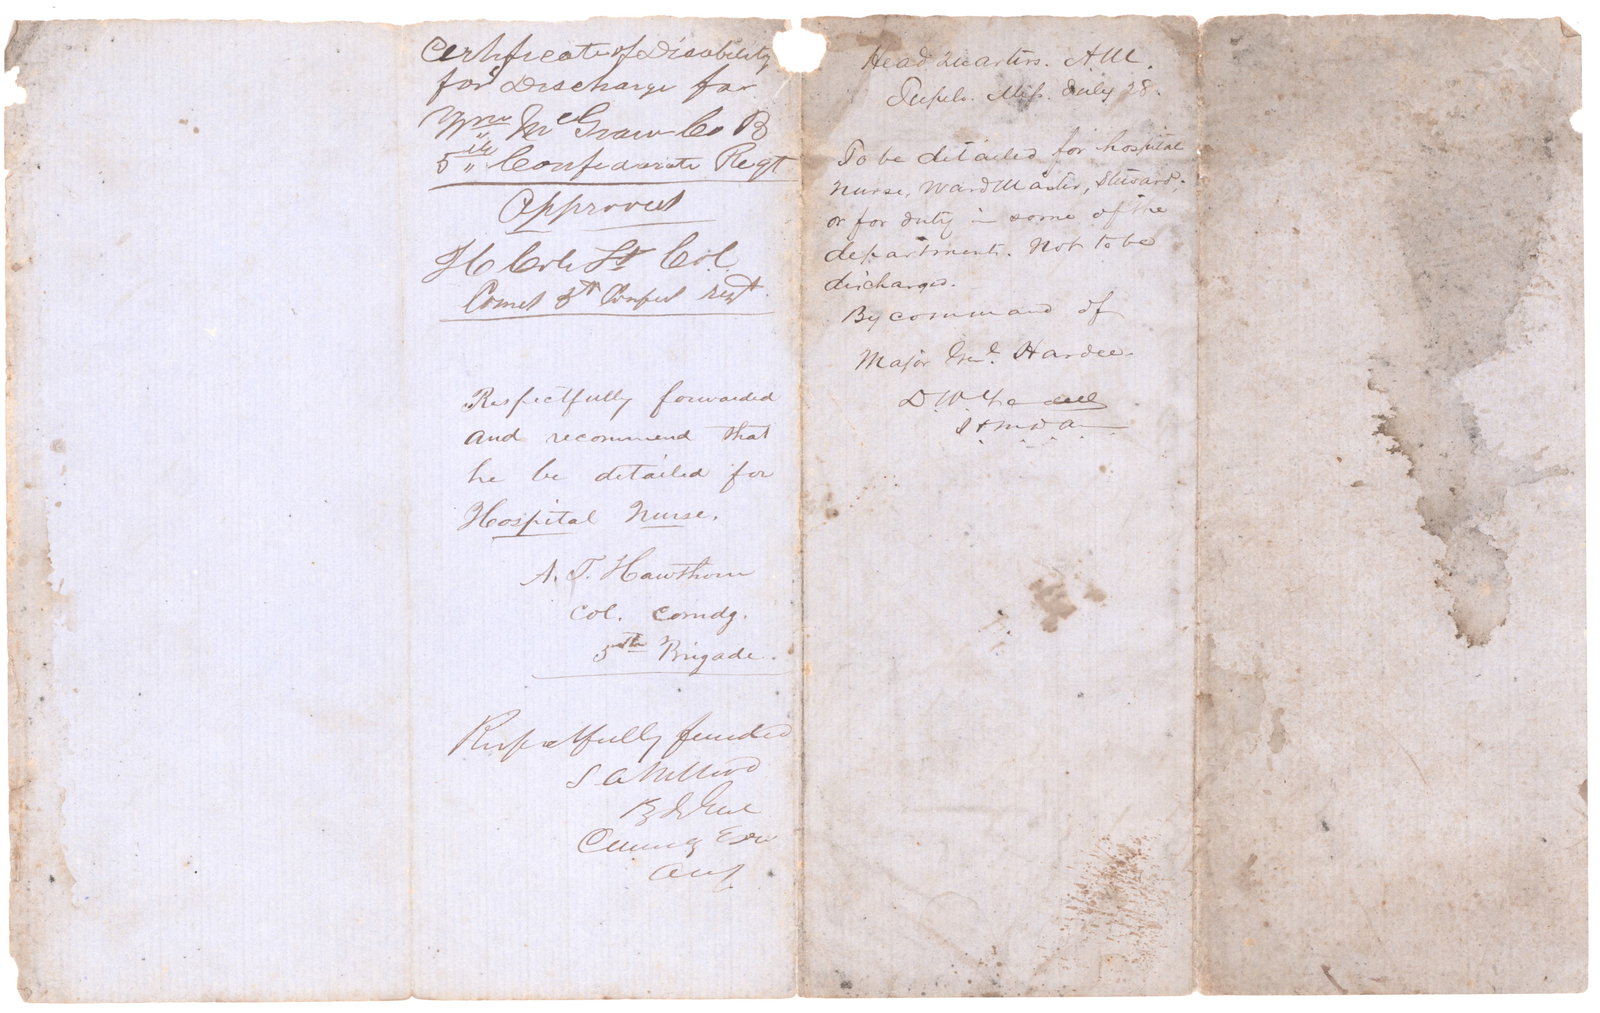 Certificate of Disability
for Discharge for
Wm McGraw Co B
5th Confederate Regt
Approved
Lt Col.
5th Confed regt.
Respectfully forwarded
and recommend that
he be detailed for
Hospital Nurse.
A. T. Hawthorn
Col. comdg.
5th Brigade.
Respectfully forwarded
Head Quarters. A M.
Tupelo. Miss. July 28.
To be detailed for hospital
nurse, Ward Master, Steward.
or for duty in some of the
departments. Not to be
discharged.
By command of
Major Genl. Hardee.